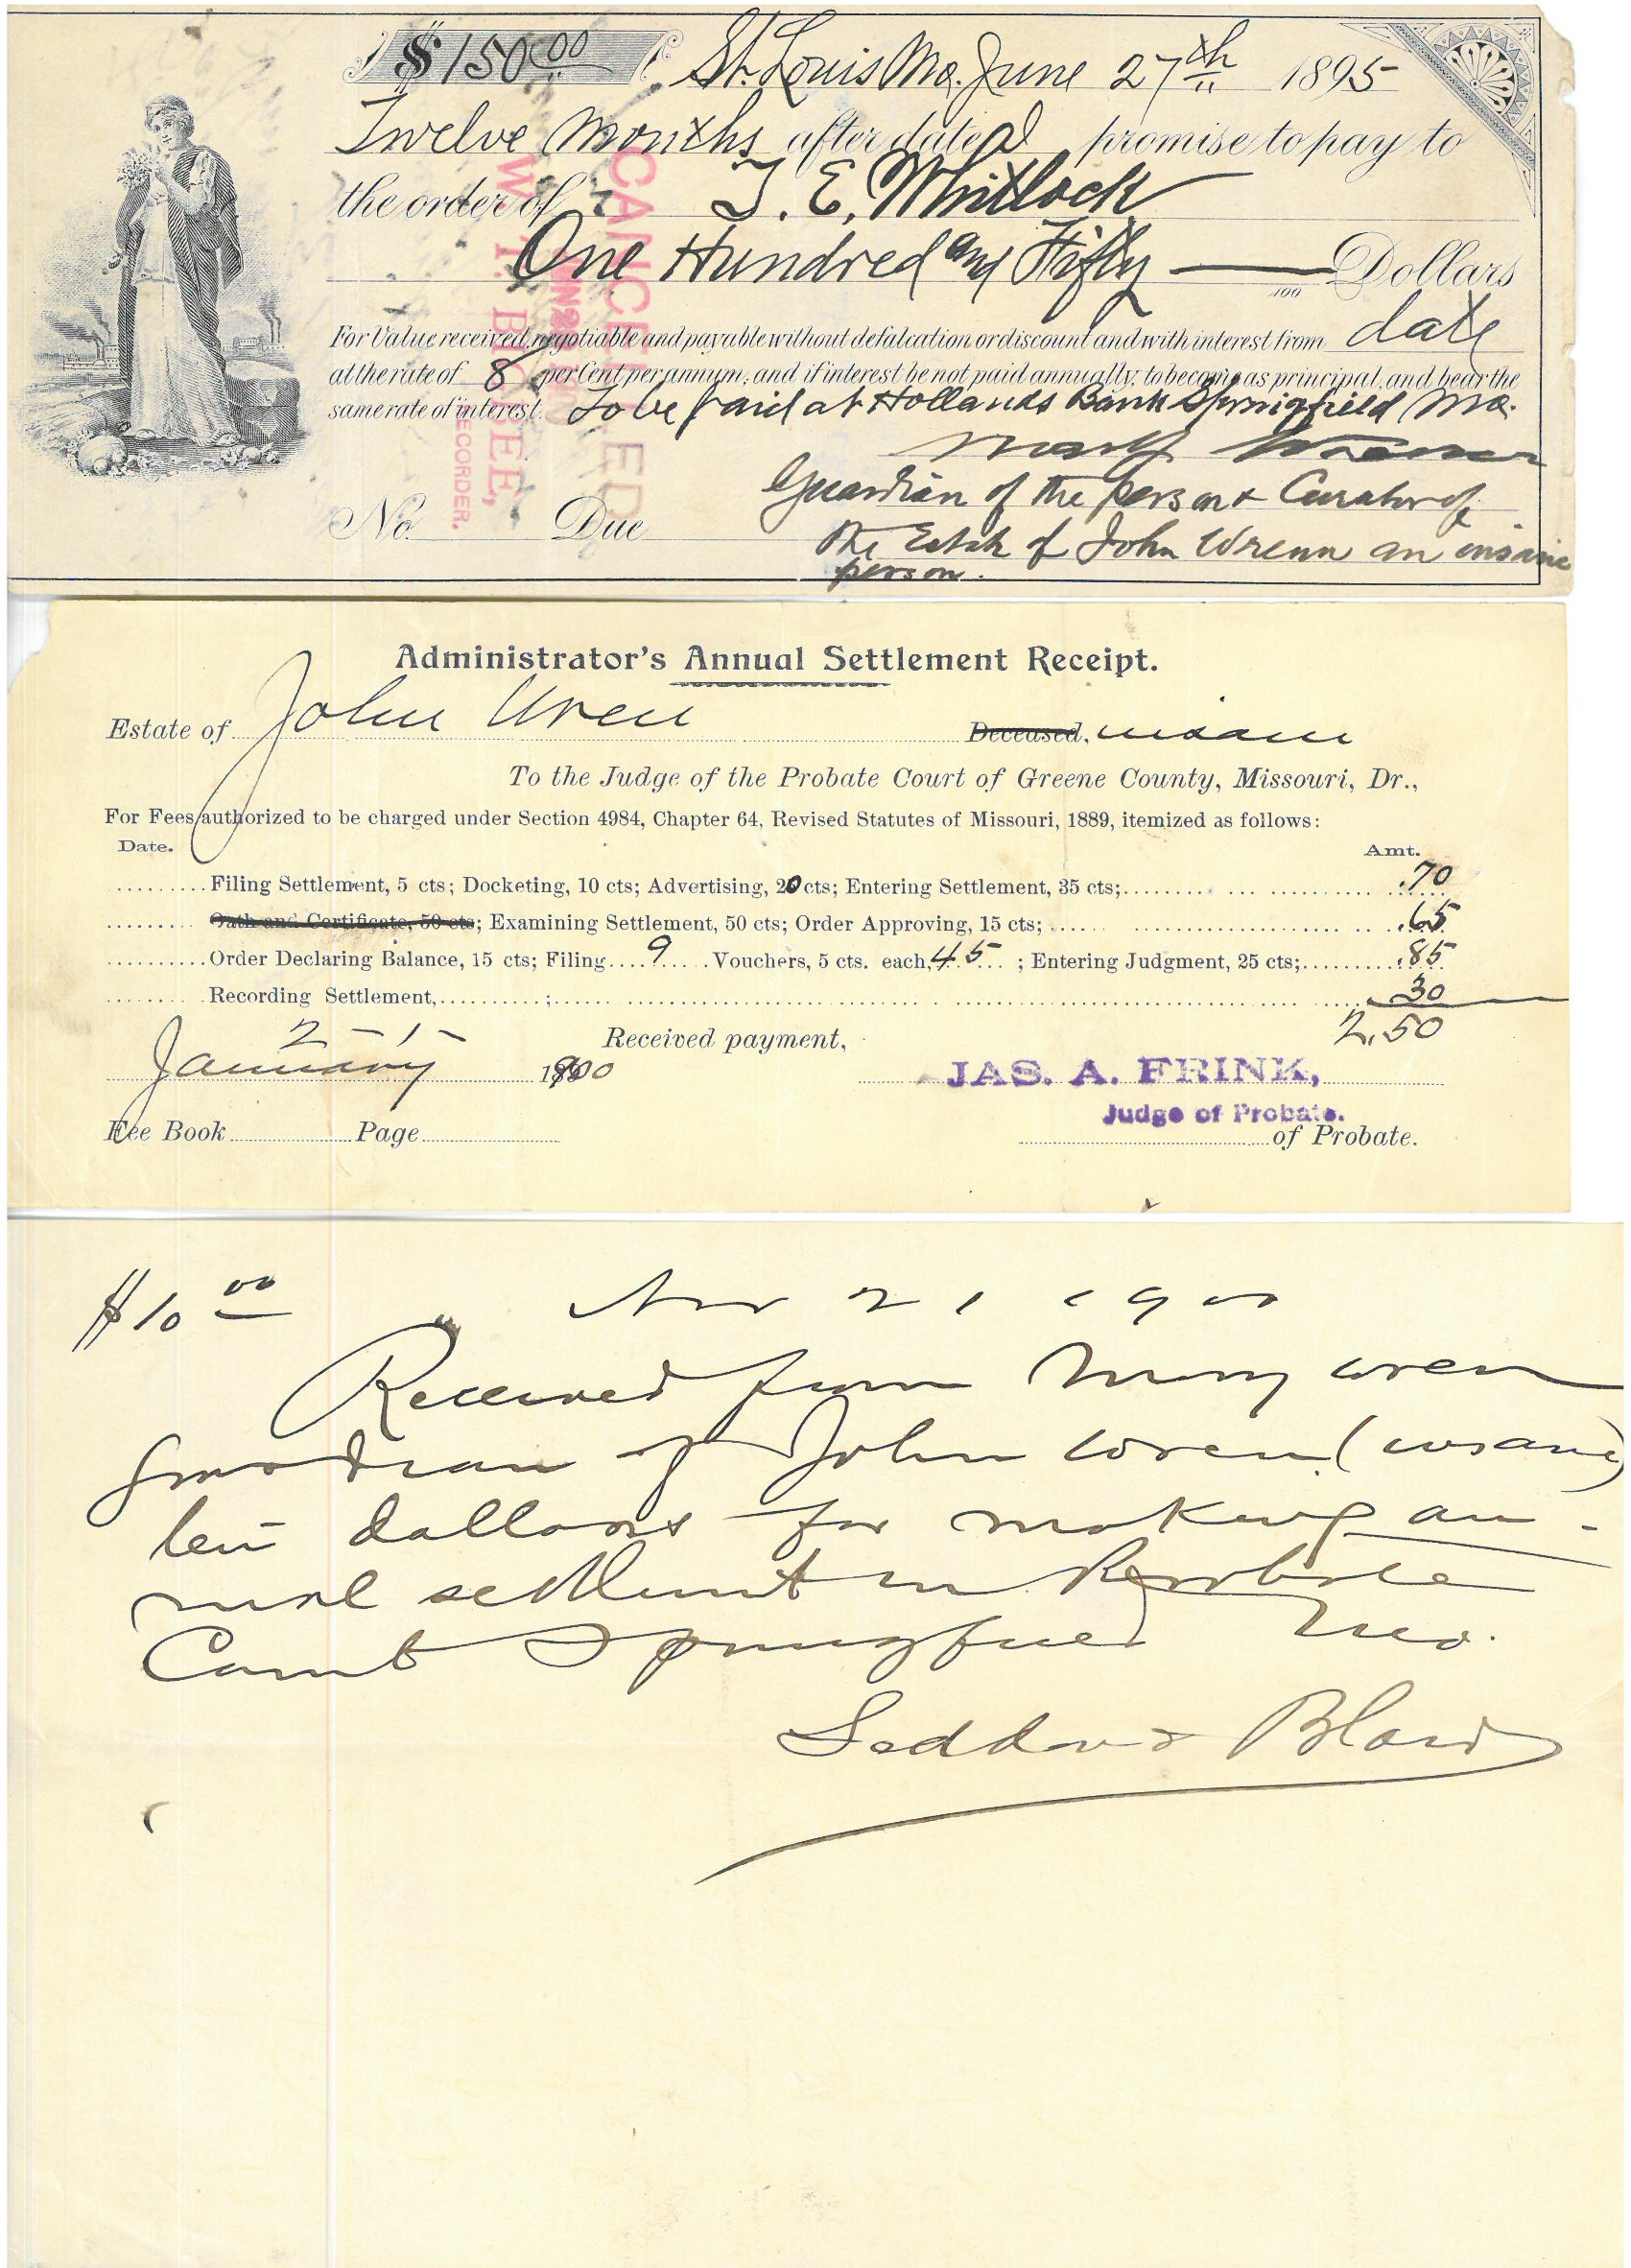 $150 00 St. Louis Mo. June 27th 1895
Twelve Months after date I promise to pay to
the order of T. E. Whitlock
One Hundred and Fifty Dollars
100
For Value received, negotiable and payable without defalcation or discount and with interest from date
at the rate of 8 per Cent per annum; and if interest be not paid annually, to become as principal, and bear the
same rate of interest. To be paid at Hollands Bank Springfield Mo.
Guardian of the person & Curator of
No. Due
the Estate of John Wrenn an insane
person.
CANCELLED
W. T.
RECORDER.
Administrator's Annual Settlement Receipt.
Estate of John Wren Deceased, insane
To the Judge of the Probate Court of Greene County, Missouri, Dr.,
For Fees authorized to be charged under Section 4984, Chapter 64, Revised Statutes of Missouri, 1889, itemized as follows:
Date. Amt.
Filing Settlement, 5 cts; Docketing, 10 cts; Advertising, 20 cts; Entering Settlement, 35 cts; .70
Oath and Certificate, 50 cts; Examining Settlement, 50 cts; Order Approving, 15 cts; .65
Order Declaring Balance, 15 cts; Filing 9 Vouchers, 5 cts. each, 45 ; Entering Judgment, 25 cts; .85
Recording Settlement, ; 30
2-1- Received payment, 2.50
January 1900 JAS. A. FRINK,
Judge of Probate.
Fee Book Page of Probate.
$10 00 Nov 21 1900
Received from Mary Wren
guardian of John Wren (insane)
ten dollars for making an-
nual settlement in Probate
Court Springfield Mo.